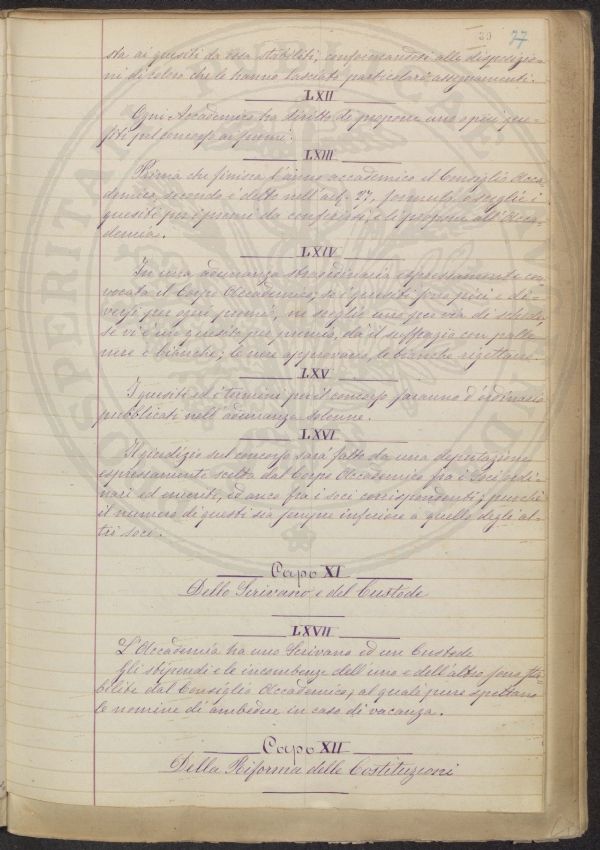 39 77
sta ai quesiti da essa stabiliti, conformandosi alle disposizio-
ni di coloro che le hanno lasciato particolari assegnamenti.
LXII
Ogni Accademico ha diritto di proporre uno o più que-
siti pel concorso ai premi.
LXIII
Prima che finisca l'anno accademico il Consiglio Acca-
demico, secondo è detto nell'art. 27, formula o sceglie i
quesiti per i premi da conferirsi, e li propone all'Acca-
demia.
LXIV
In una adunanza straordinaria espressamente con-
vocata il Corpo Accademico, se i quesiti sono più e di-
versi per ogni premio, ne sceglie uno per via di schede,
se vi è un quesito per premio, dà il suffragio con palle
nere e bianche; le nere approvano, le bianche rigettano.
LXV
I quesiti ed i termini pel concorso saranno d'ordinario
pubblicati nell'adunanza solenne.
LXVI
Il giudizio sul concorso sarà fatto da una deputazione
espressamente scelta dal Corpo Accademico fra i Soci ordi-
nari ed emeriti, ed anco fra i soci corrispondenti; purchè
il numero di questi sia sempre inferiore a quello degli al-
tri soci.
Capo XI
Dello Scrivano e del Custode
LXVII
L'Accademia ha uno Scrivano ed un Custode
Gli stipendi e le incombenze dell'uno e dell'altro sono sta-
bilite dal Consiglio Accademico, al quale pure spettano
le nomine di ambedue in caso di vacanza.
Capo XII
Della Riforma delle Costituzioni